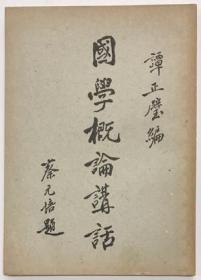 譚正璧編
國學概論講話
蔡元培題